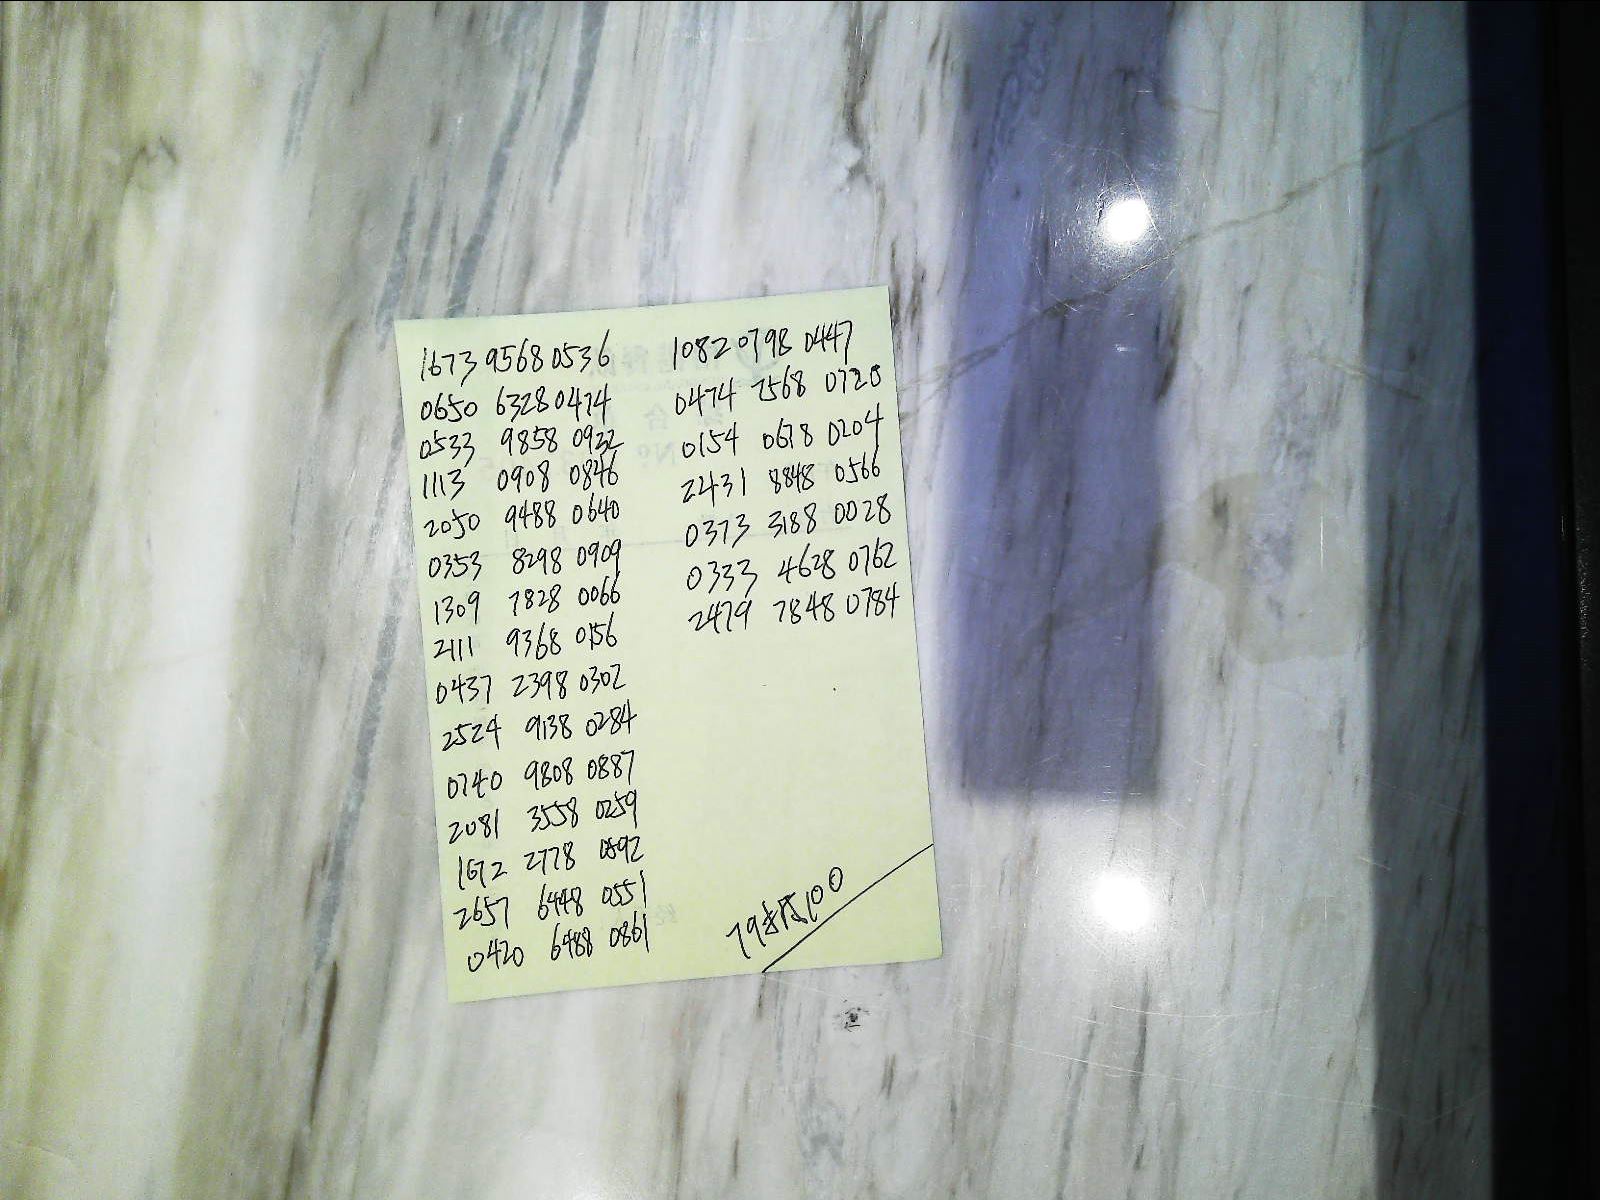 1673 9568 0536
0650 6328 0474
0533 9858 0932
1113 0908 0846
2050 9488 0640
0353 8298 0909
1309 7828 0066
2111 9368 0156
0437 2398 0302
2524 9138 0284
0740 9808 0887
2081 3558 0259
1672 2778 0892
2657 6448 0551
0420 6488 0861
1082 0798 0447
0474 7568 0720
0154 0678 0204
2431 8848 0566
0373 3188 0028
0333 4628 0762
2479 7848 0784